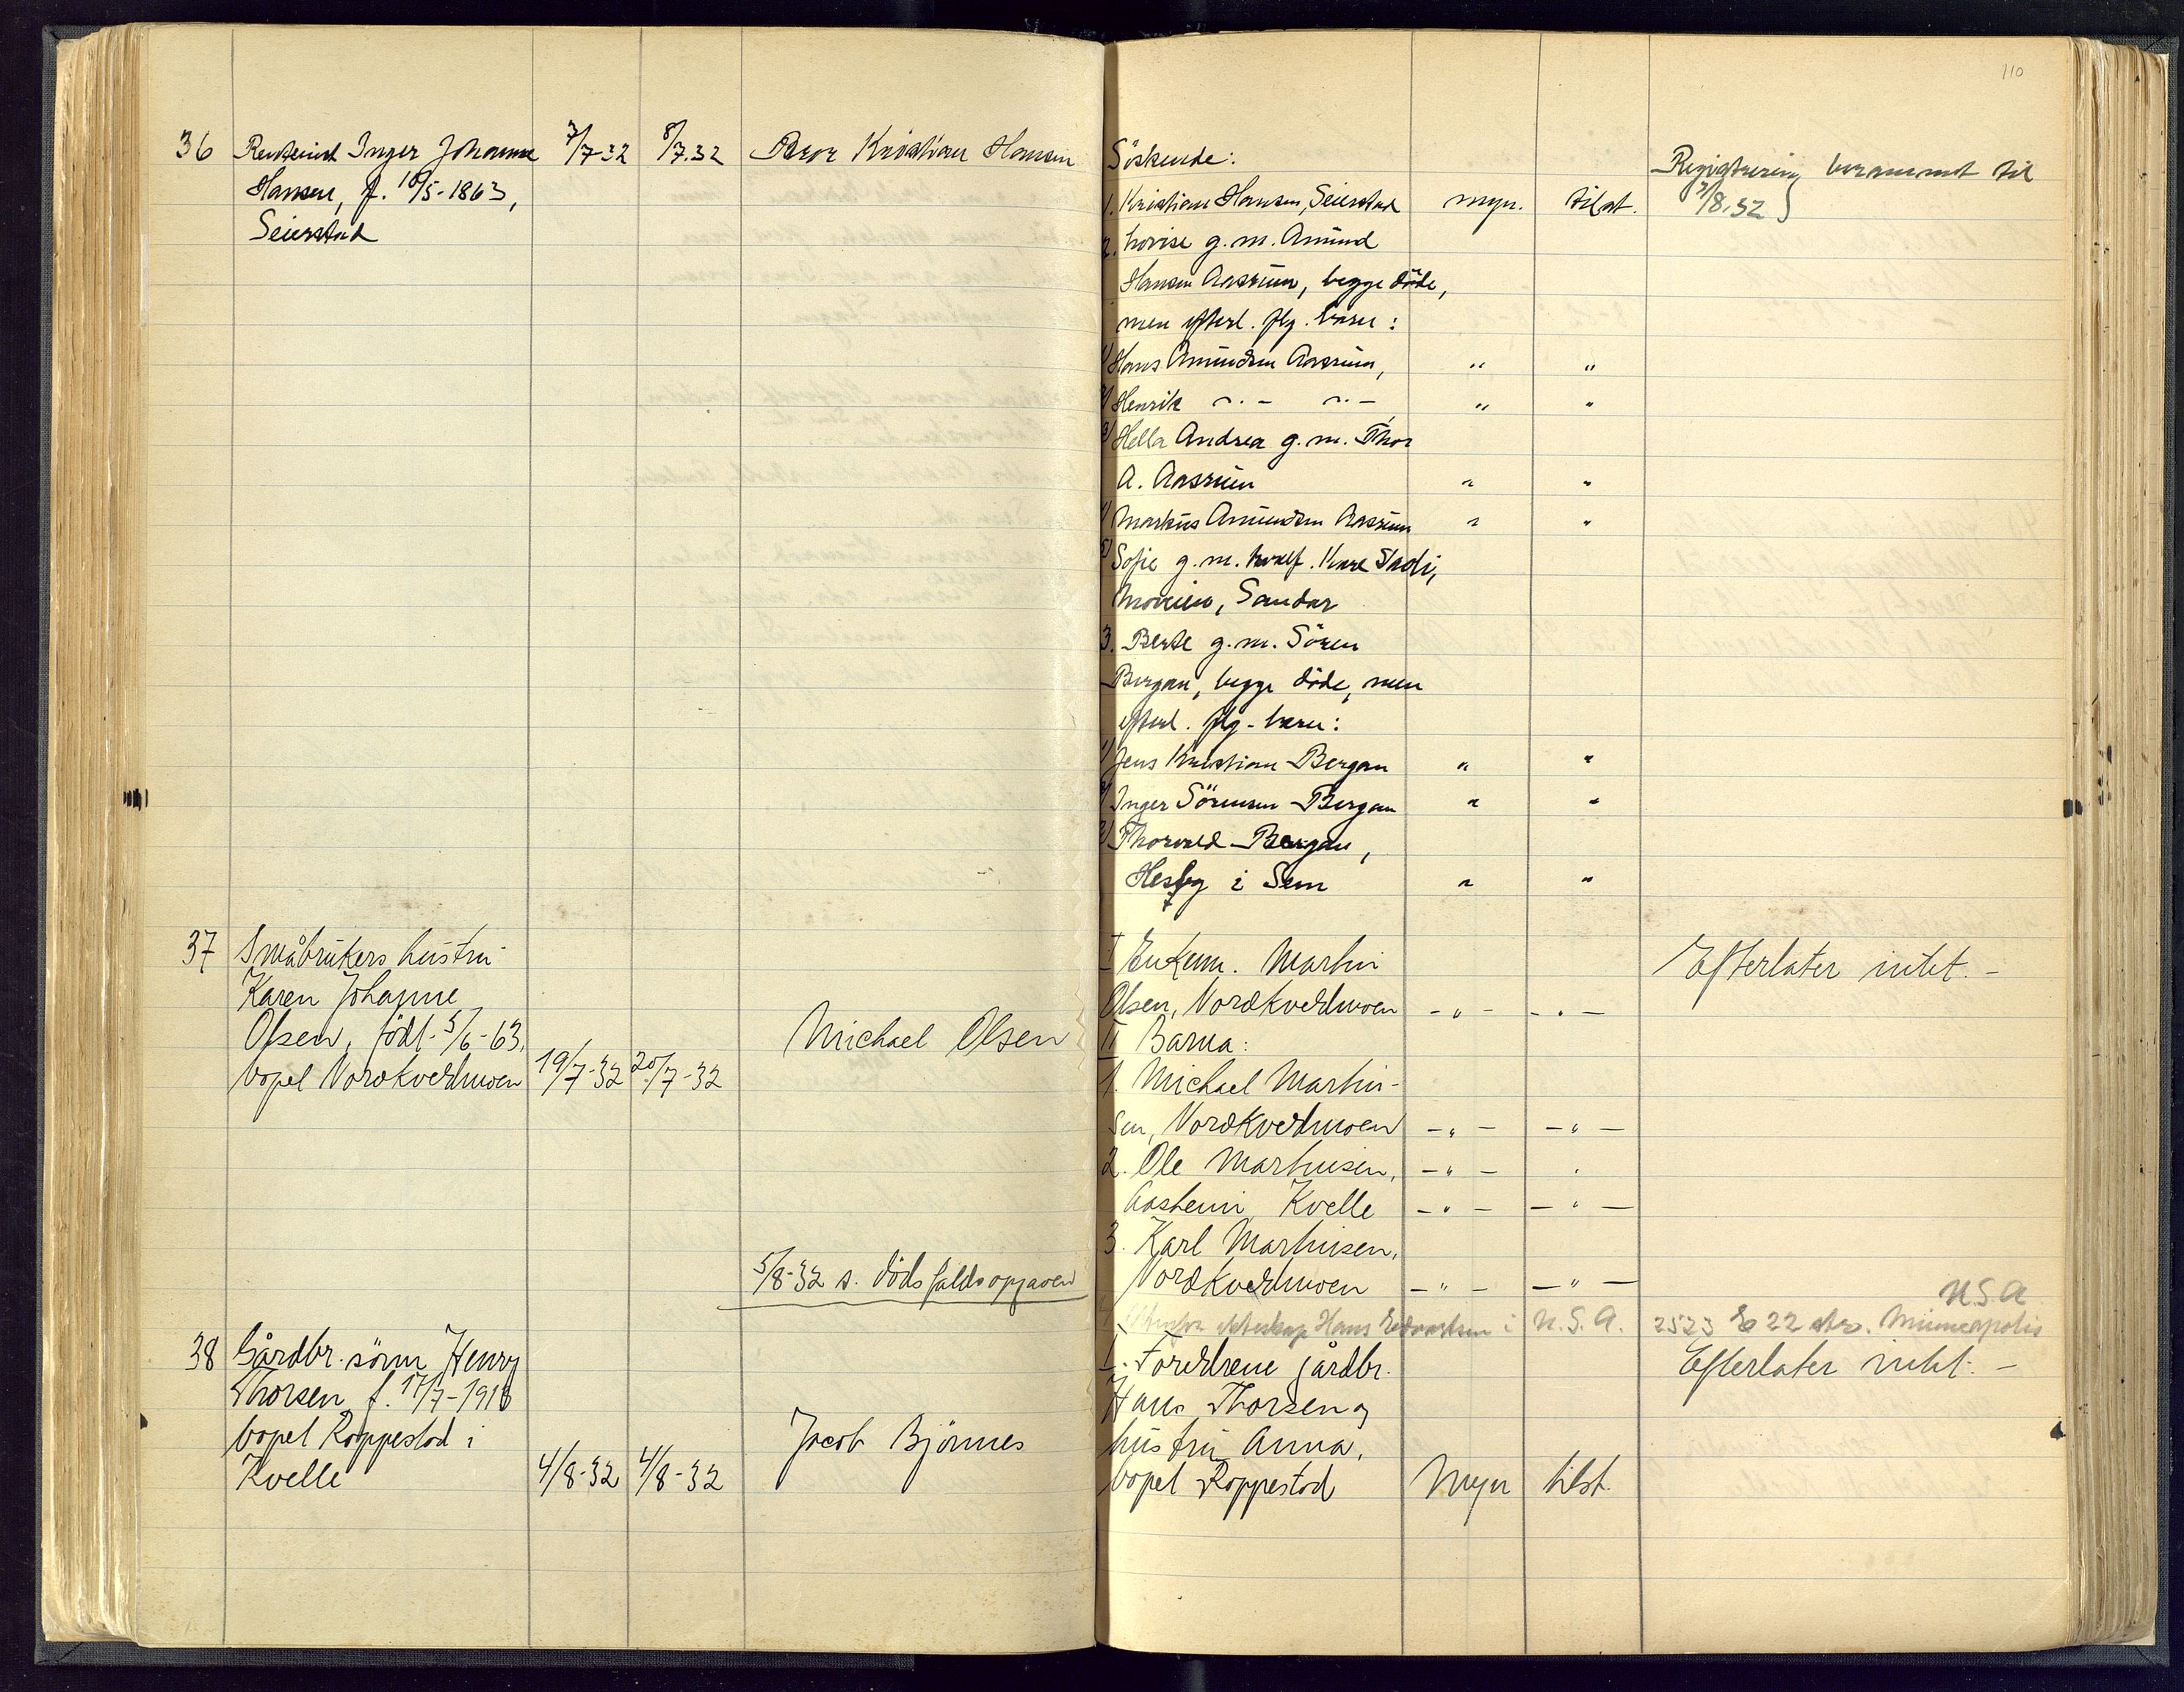 110
36 Rentenist Inger Johanne 3/7-32 8/7.32 Bror Kristian Hansen
Hansen, f. 10/5-1863,
Seierstad
Söskende:
1. Kristian Hansen, Seierstad myn. tilst.
Registrering berammet til
3/8.32
2. Lovise g. m. Amund
Hansen Aasrum, begge döde,
men efterl. flg. barn:
1) Hans Amundsen Aasrum, " "
2) Henrik -"- -"- " "
3) Hella Andrea g. m. Thor
A. Aasrum " "
4) Markus Amundsen Aasrum " "
5) Sofie g. m. Kare
Sandar
3. Berte g. m. Sören
Bergan, begge döde, men
efterl. flg. barn:
1) Jens Kristian Bergan " "
2) Inger Sörensen Bergan " "
3) Thorvald Bergan,
Hesby i Sem " "
37 Småbrukers hustru
Karen Johanne
Olsen, födt 5/6-63,
bopel Nordkvelmoen 19/7-32 20/7-32 Michael Olsen
I Enkem. Martin
Olsen, Nordkvelmoen -"- -"-
Efterlater intet. -
II Barna:
1. Michael Martin-
sen, Nordkvelmoen -"- -"-
2. Ole Martinsen, -"- "
Aasheim, Kvelle -"- -"-
3. Karl Martinsen,
Nordkvelmoen -"- -"-
5/8-32 s. dödsfaldsopgaven
U.S.A
4 ekteskap Hans Edvardsen i U.S.A. 2523 E 22 Minneapolis
38 Gårdbr. sönn Henry
Thorsen f. 17/7-1918
bopel Roppestad i
Kvelle 4/8-32 4/8-32 Jacob Bjönnes
I. Foreldrene gårdbr.
Hans Thorsen og
hustru Anna,
bopel Roppestad Myn tilst.
Efterlater intet. -